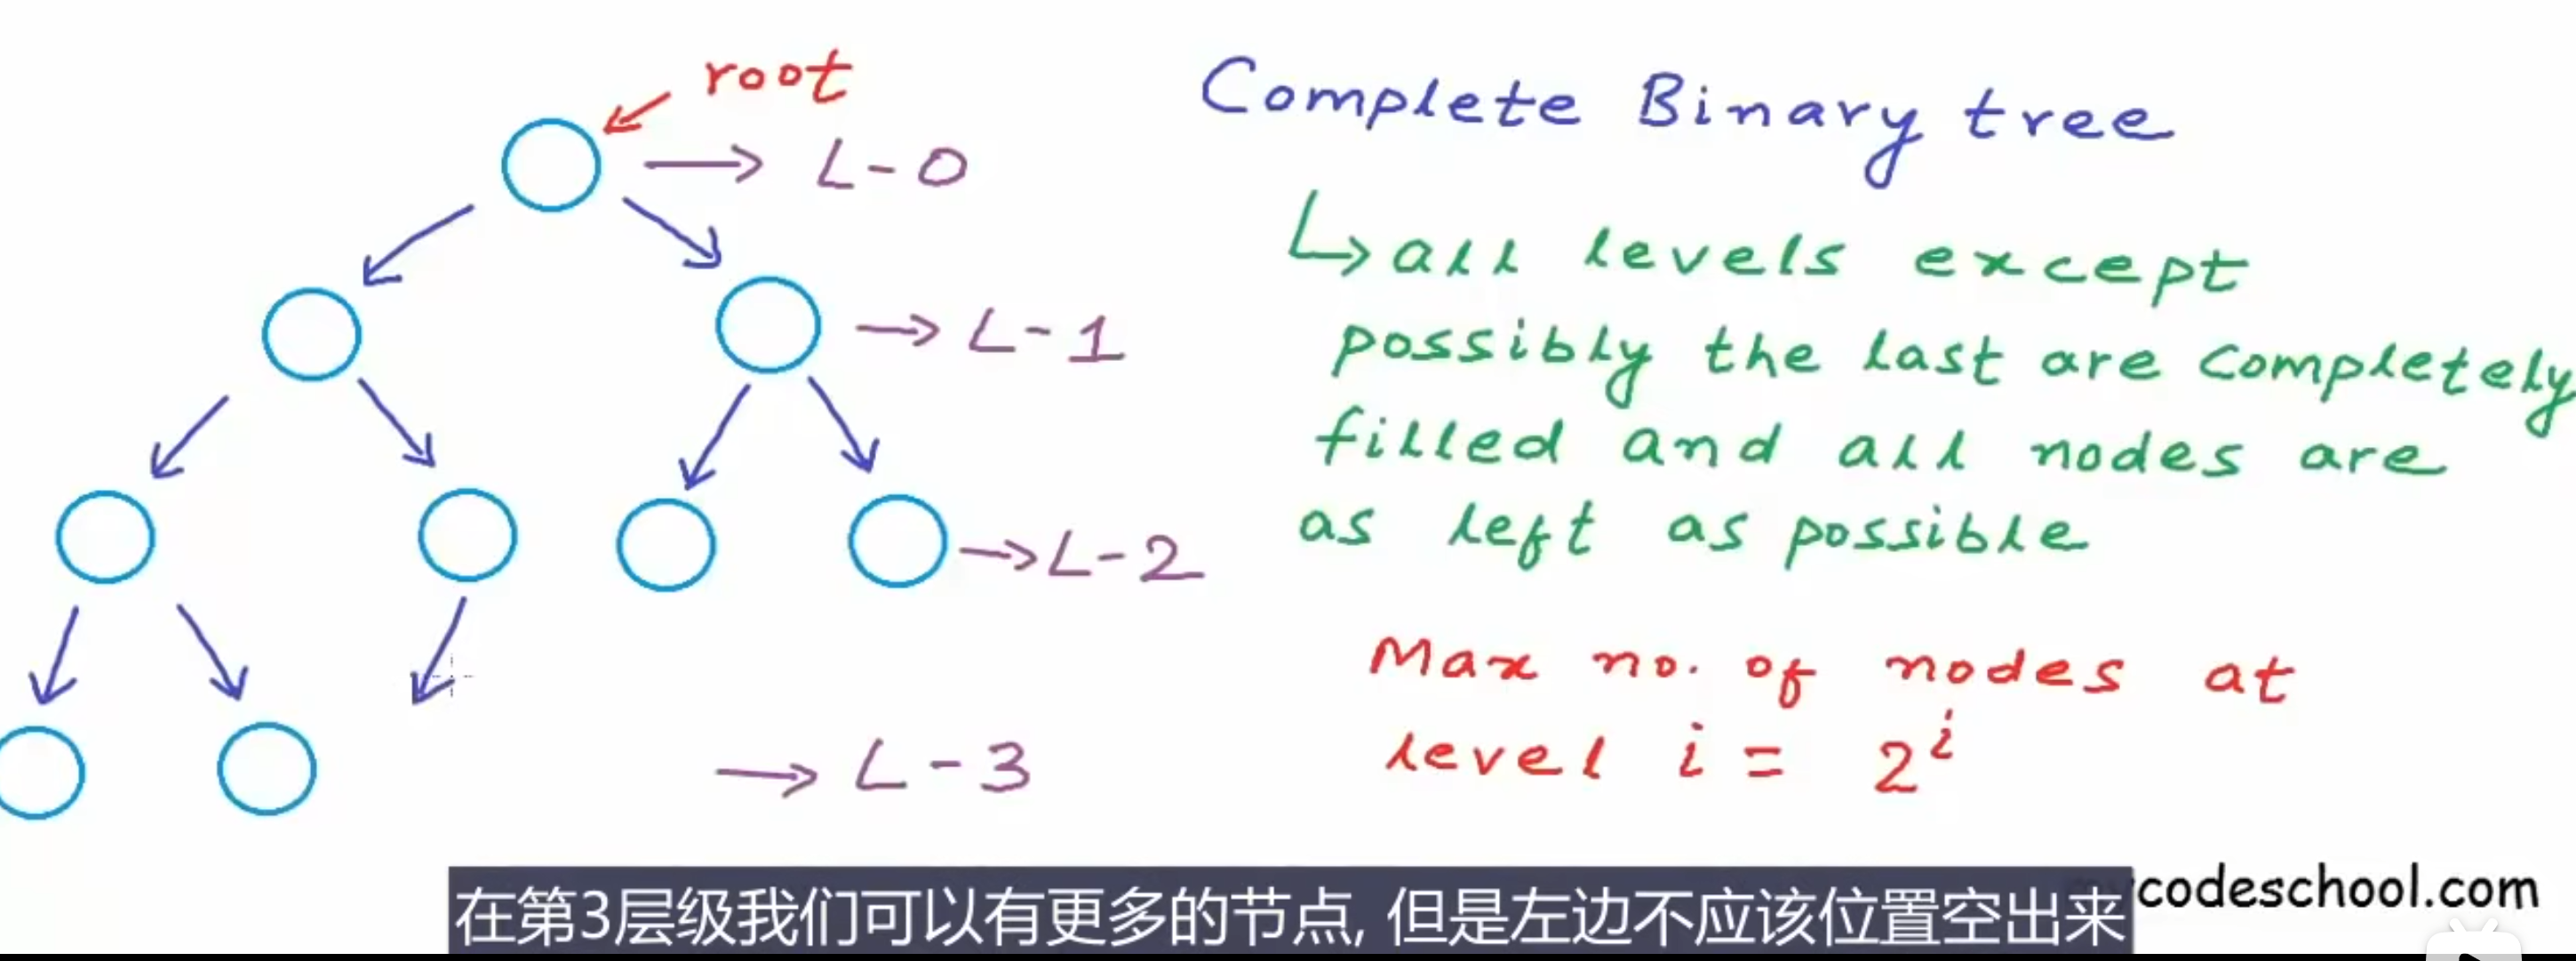 root
L-0
L-1
L-2
L-3
Complete Binary tree
all levels except
possibly the last are completely
filled and all nodes are
as left as possible
Max no. of nodes at
level i = 2^i
在第3层级我们可以有更多的节点, 但是左边不应该位置空出来
codeschool.com